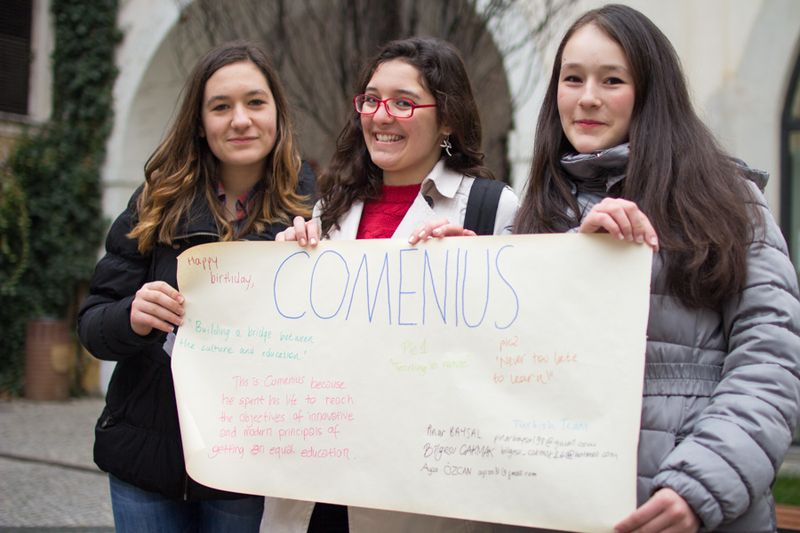 Happy
birthday,
COMENIUS
"Building a bridge between
the culture and education"
Pic1
"Teaching is nature"
pic2
"Never too late
to learn"
This is Comenius because
he spent his life to reach
the objectives of innovative
and modern principals of
getting an equal education.
Turkish Team
Pınar BAYSAL
Bilgesu ÇAKMAK
Ayça ÖZCAN